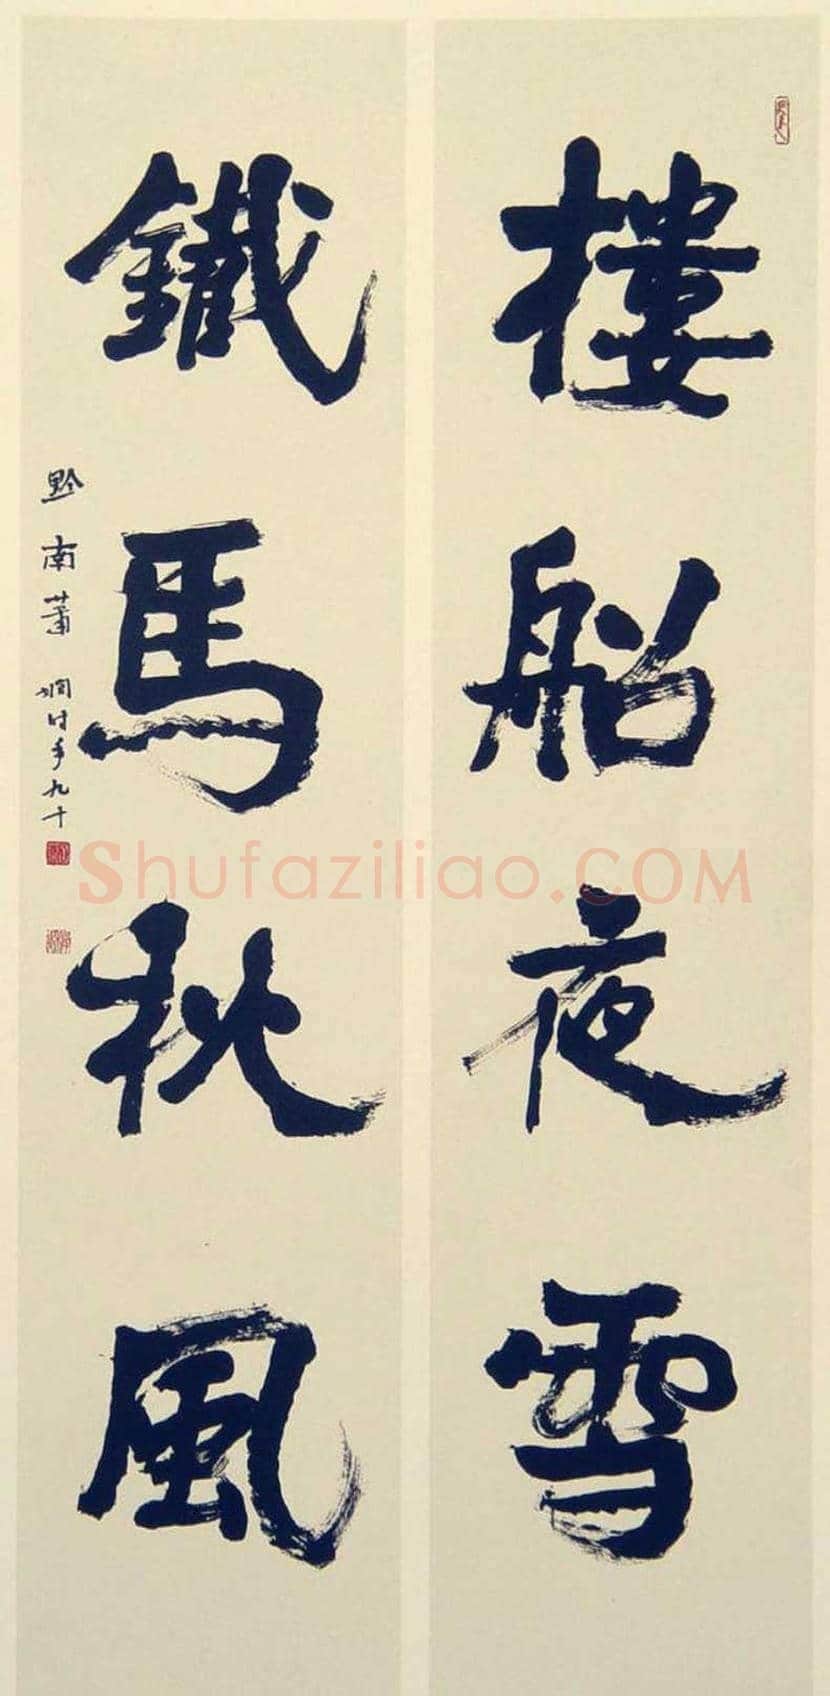 樓船夜雪
鐵馬秋風
黔南蕭嫻時年九十
Shufaziliao.COM